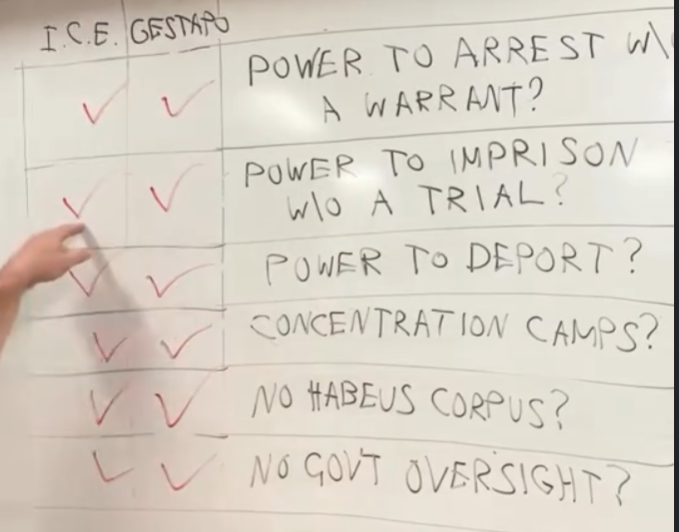 I.C.E. GESTAPO
POWER TO ARREST W\
A WARRANT?
POWER TO IMPRISON
W\O A TRIAL?
POWER TO DEPORT?
CONCENTRATION CAMPS?
NO HABEUS CORPUS?
NO GOVT OVERSIGHT?